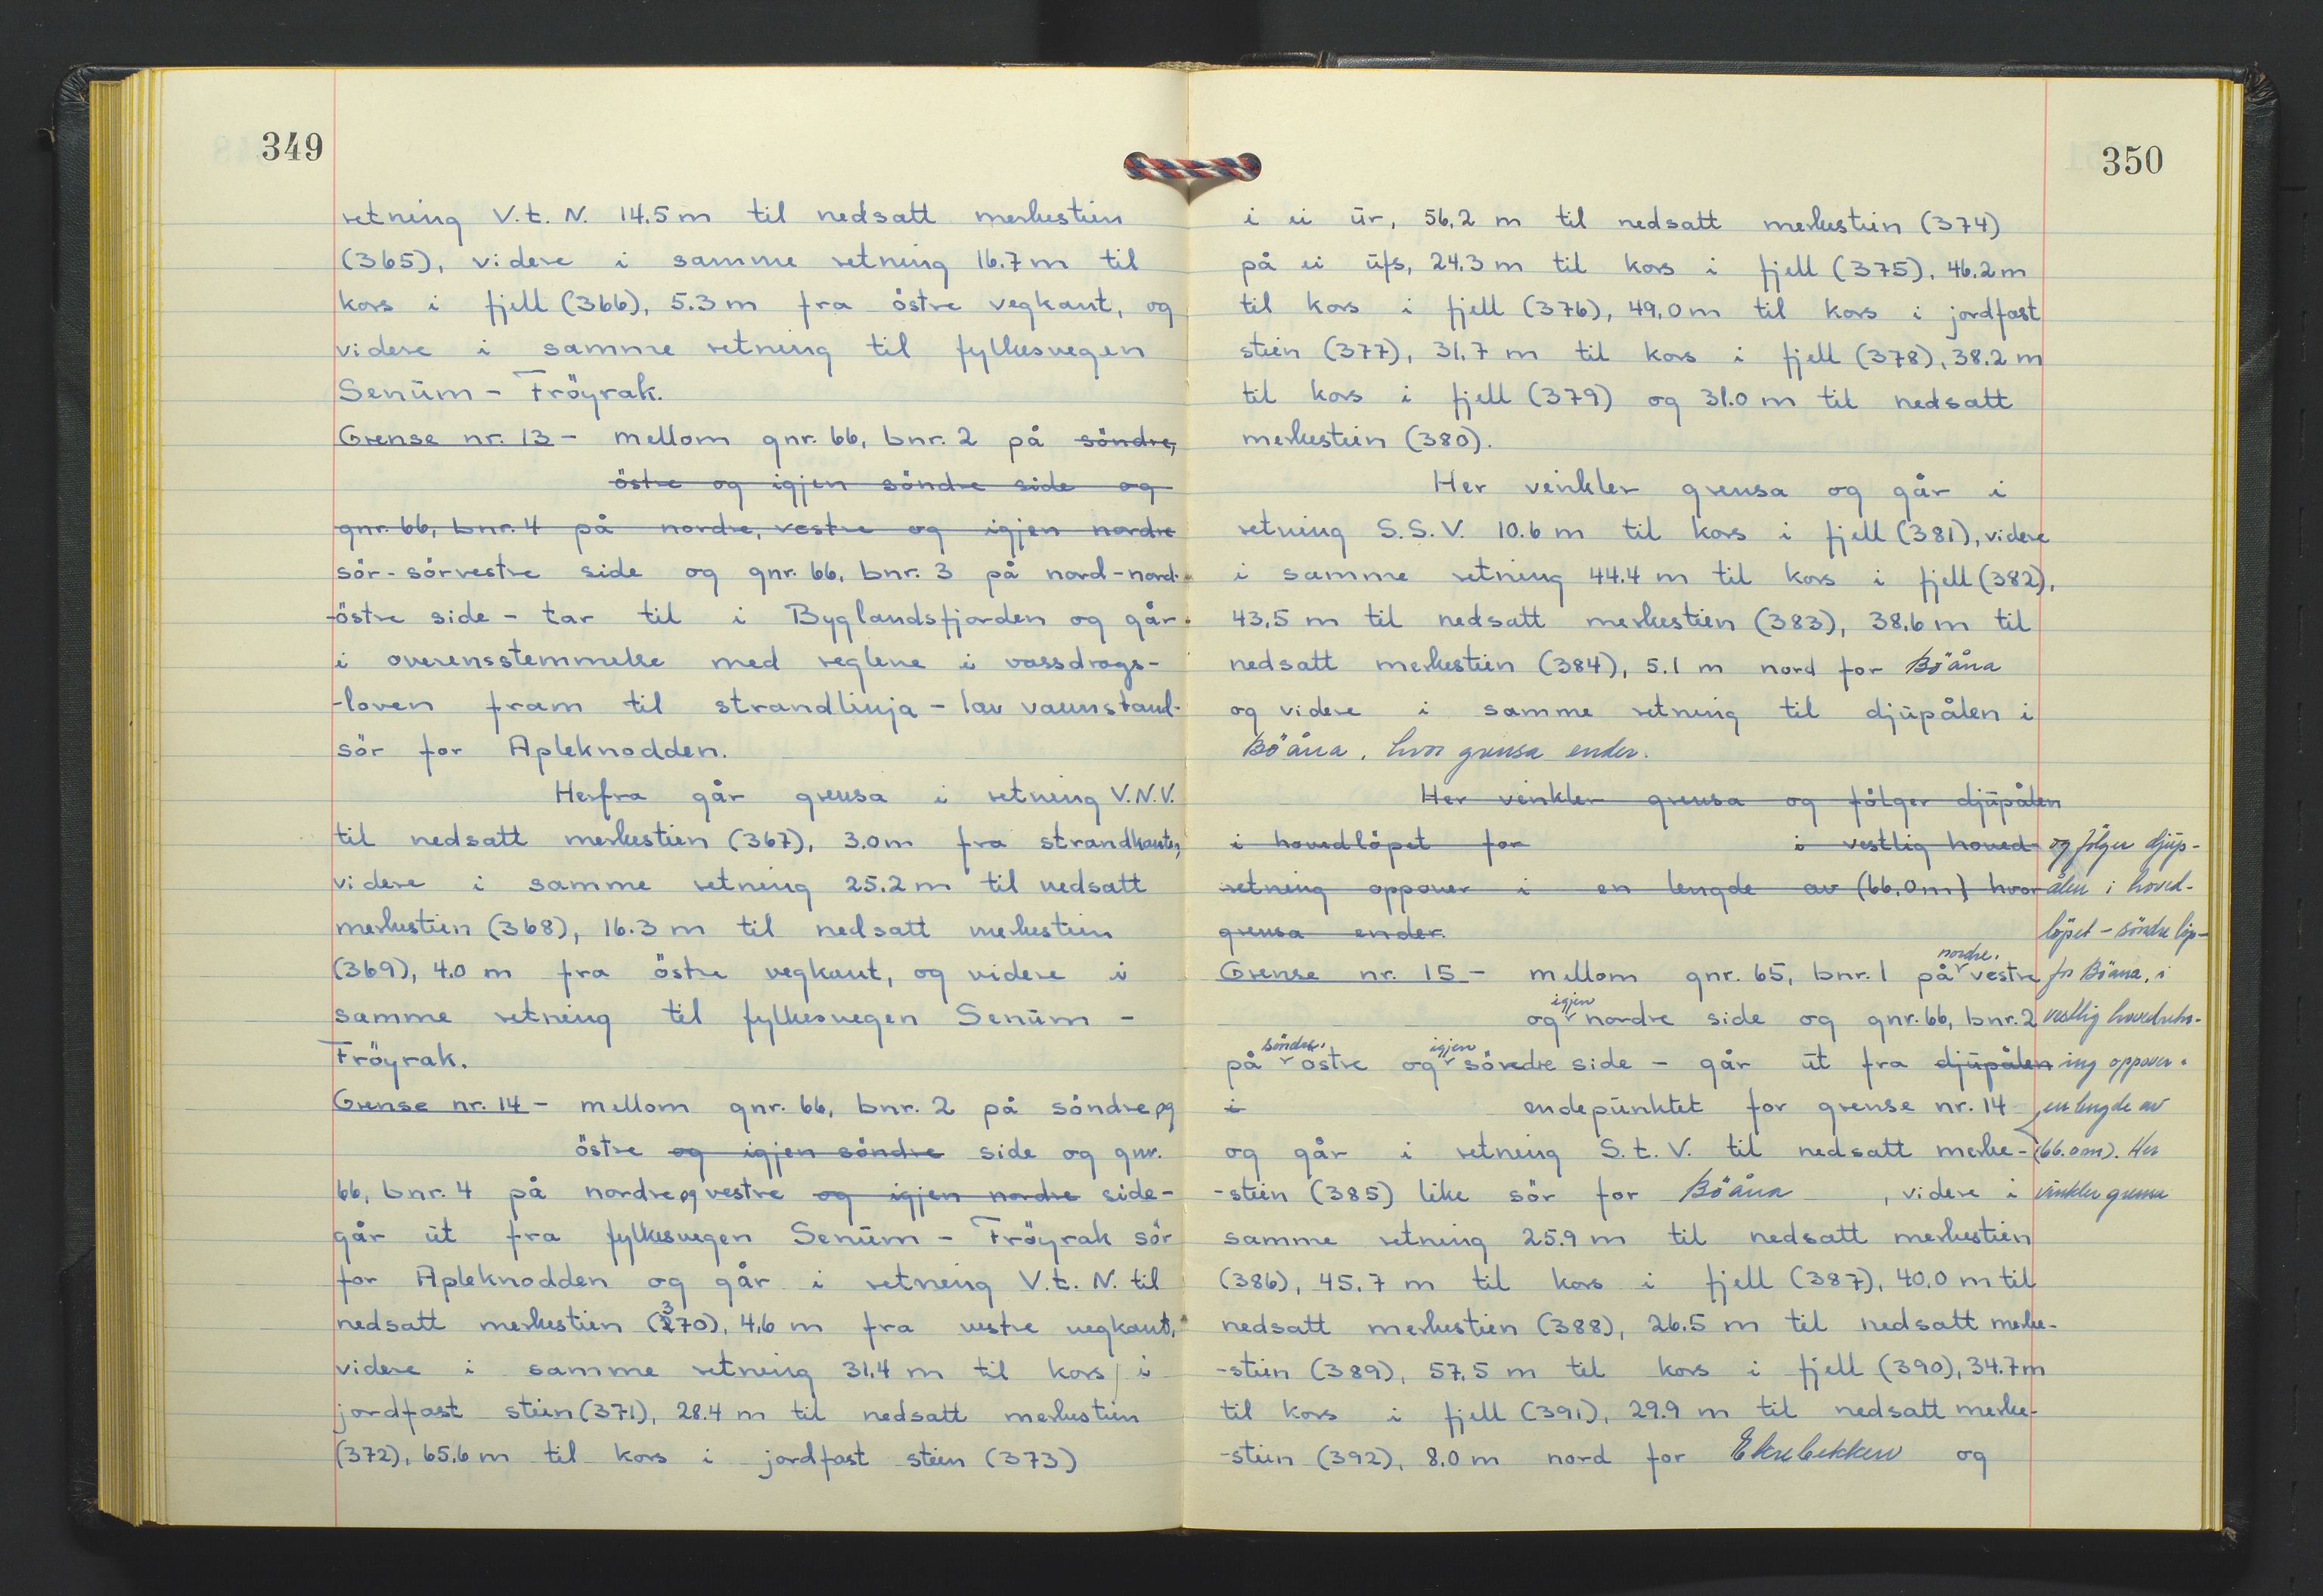 349
retning V.t. N. 14.5 m til nedsatt merkestein
(365), videre i samme retning 16.7 m til
kors i fjell (366), 5.3 m fra östre vegkant, og
videre i samme retning til fylkesvegen
Senum - Fröyrak.
Grense nr. 13 - mellom gnr. 66, bnr. 2 på söndre,
östre og igjen söndre side og
gnr. 66, bnr. 4 på nordre, vestre og igjen nordre
sör-sörvestre side og gnr. 66, bnr. 3 på nord-nord-
-östre side - tar til i Byglandsfjorden og går
i overensstemmelse med reglene i vassdrags-
-loven fram til strandlinja - lav vannstand-
sör for Apleknodden.
Herfra går grensa i retning V.N.V.
til nedsatt merkestein (367), 3.0 m fra strandkanten,
videre i samme retning 25.2 m til nedsatt
merkestein (368), 16.3 m til nedsatt merkestein
(369), 4.0 m fra östre vegkant, og videre i
samme retning til fylkesvegen Senum -
Fröyrak.
Grense nr. 14 - mellom gnr. 66, bnr. 2 på söndre og
östre og igjen söndre side og gnr.
66, bnr. 4 på nordre og vestre og igjen nordre side -
går ut fra fylkesvegen Senum - Fröyrak sör
for Apleknodden og går i retning V.t. N. til
nedsatt merkestein (370), 4.6 m fra vestre vegkant,
videre i samme retning 31.4 m til kors i
jordfast stein (371), 28.4 m til nedsatt merkestein
(372), 65.6 m til kors i jordfast stein (373)
350
i ei ur, 56.2 m til nedsatt merkestein (374)
på ei ufs, 24.3 m til kors i fjell (375), 46.2 m
til kors i fjell (376), 49.0 m til kors i jordfast
stein (377), 31.7 m til kors i fjell (378), 38.2 m
til kors i fjell (379) og 31.0 m til nedsatt
merkestein (380).
Her vinkler grensa og går i
retning S.S.V. 10.6 m til kors i fjell (381), videre
i samme retning 44.4 m til kors i fjell (382),
43.5 m til nedsatt merkestein (383), 38.6 m til
nedsatt merkestein (384), 5.1 m nord for Böåna
og videre i samme retning til djupålen i
Böåna, hvor grensa ender.
Her vinkler grensa og fölger djupålen
i hovedlöpet for i vestlig hoved-
retning oppover i en lengde av (66.0 m) hvor
grensa ender.
Grense nr. 15 - mellom gnr. 65, bnr. 1 på nordre, vestre
og igjen nordre side og gnr. 66, bnr. 2
på söndre, östre og igjen söndre side - går ut fra djupålen
i endepunktet for grense nr. 14
og går i retning S.t. V. til nedsatt merke-
-stein (385) like sör for Böåna , videre i
samme retning 25.9 m til nedsatt merkestein
(386), 45.7 m til kors i fjell (387), 40.0 m til
nedsatt merkestein (388), 26.5 m til nedsatt merke-
-stein (389), 57.5 m til kors i fjell (390), 34.7 m
til kors i fjell (391), 29.9 m til nedsatt merke-
-stein (392), 8.0 m nord for Ekrebekken og
og fölger djup-
ålen i hoved-
löpet - söndre löp -
for Böåna, i
vestlig hovedretn-
ing oppover i
en lengde av
(66.0 m). Her
vinkler grensa